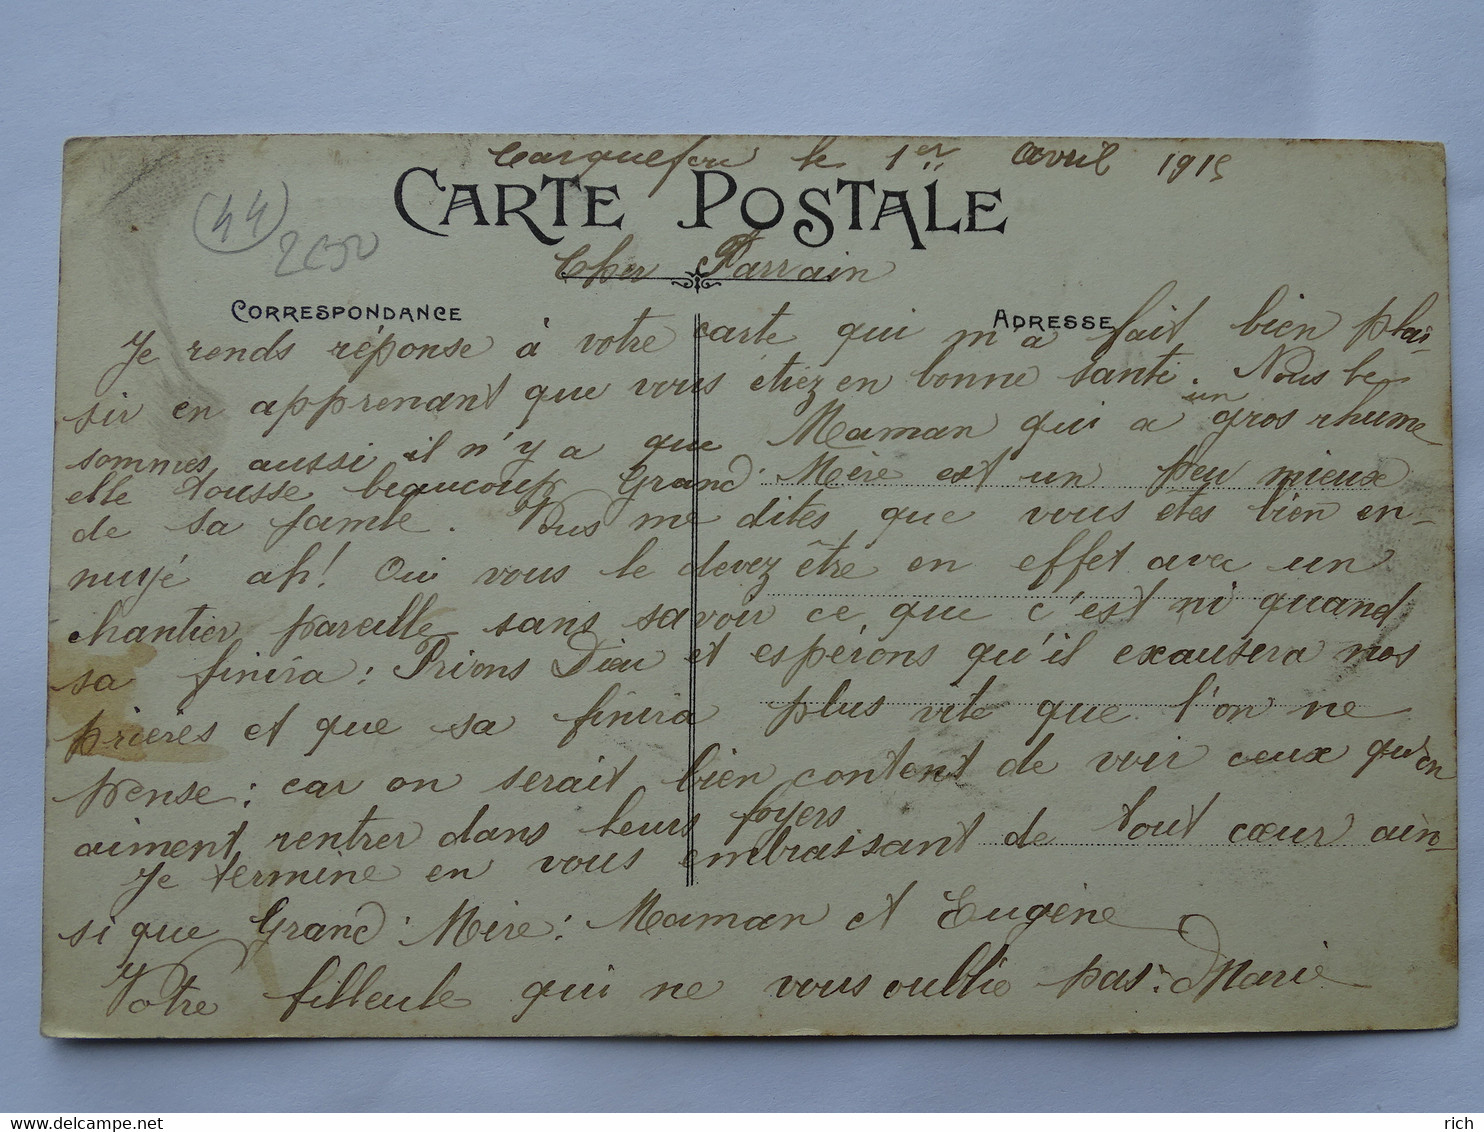 Carquefou le 1er avril 1915
CARTE POSTALE
(44)
Cher Parrain
CORRESPONDANCE
ADRESSE
Je rends réponse à votre carte qui m'a fait bien plai-
sir en apprenant que vous étiez en bonne santé. Nous le
sommes aussi il n'y a que Maman qui a un gros rhume
elle tousse beaucoup Grand'Mère est un peu mieux
de sa jambe. Vous me dites que vous êtes bien en-
nuyé ah! Oui vous le devez être en effet avec un
chantier pareille sans savoir ce que c'est ni quand
sa finira: Prions Dieu et espérons qu'il exausera nos
prières et que sa finira plus vite que l'on ne
pense: car on serait bien content de voir ceux qu'on
aiment rentrer dans leurs foyers
Je termine en vous embrassant de tout cœur ain-
si que Grand'Mère: Maman et Eugène
Votre filleule qui ne vous oublie pas: Marie
delcampe.net
rich